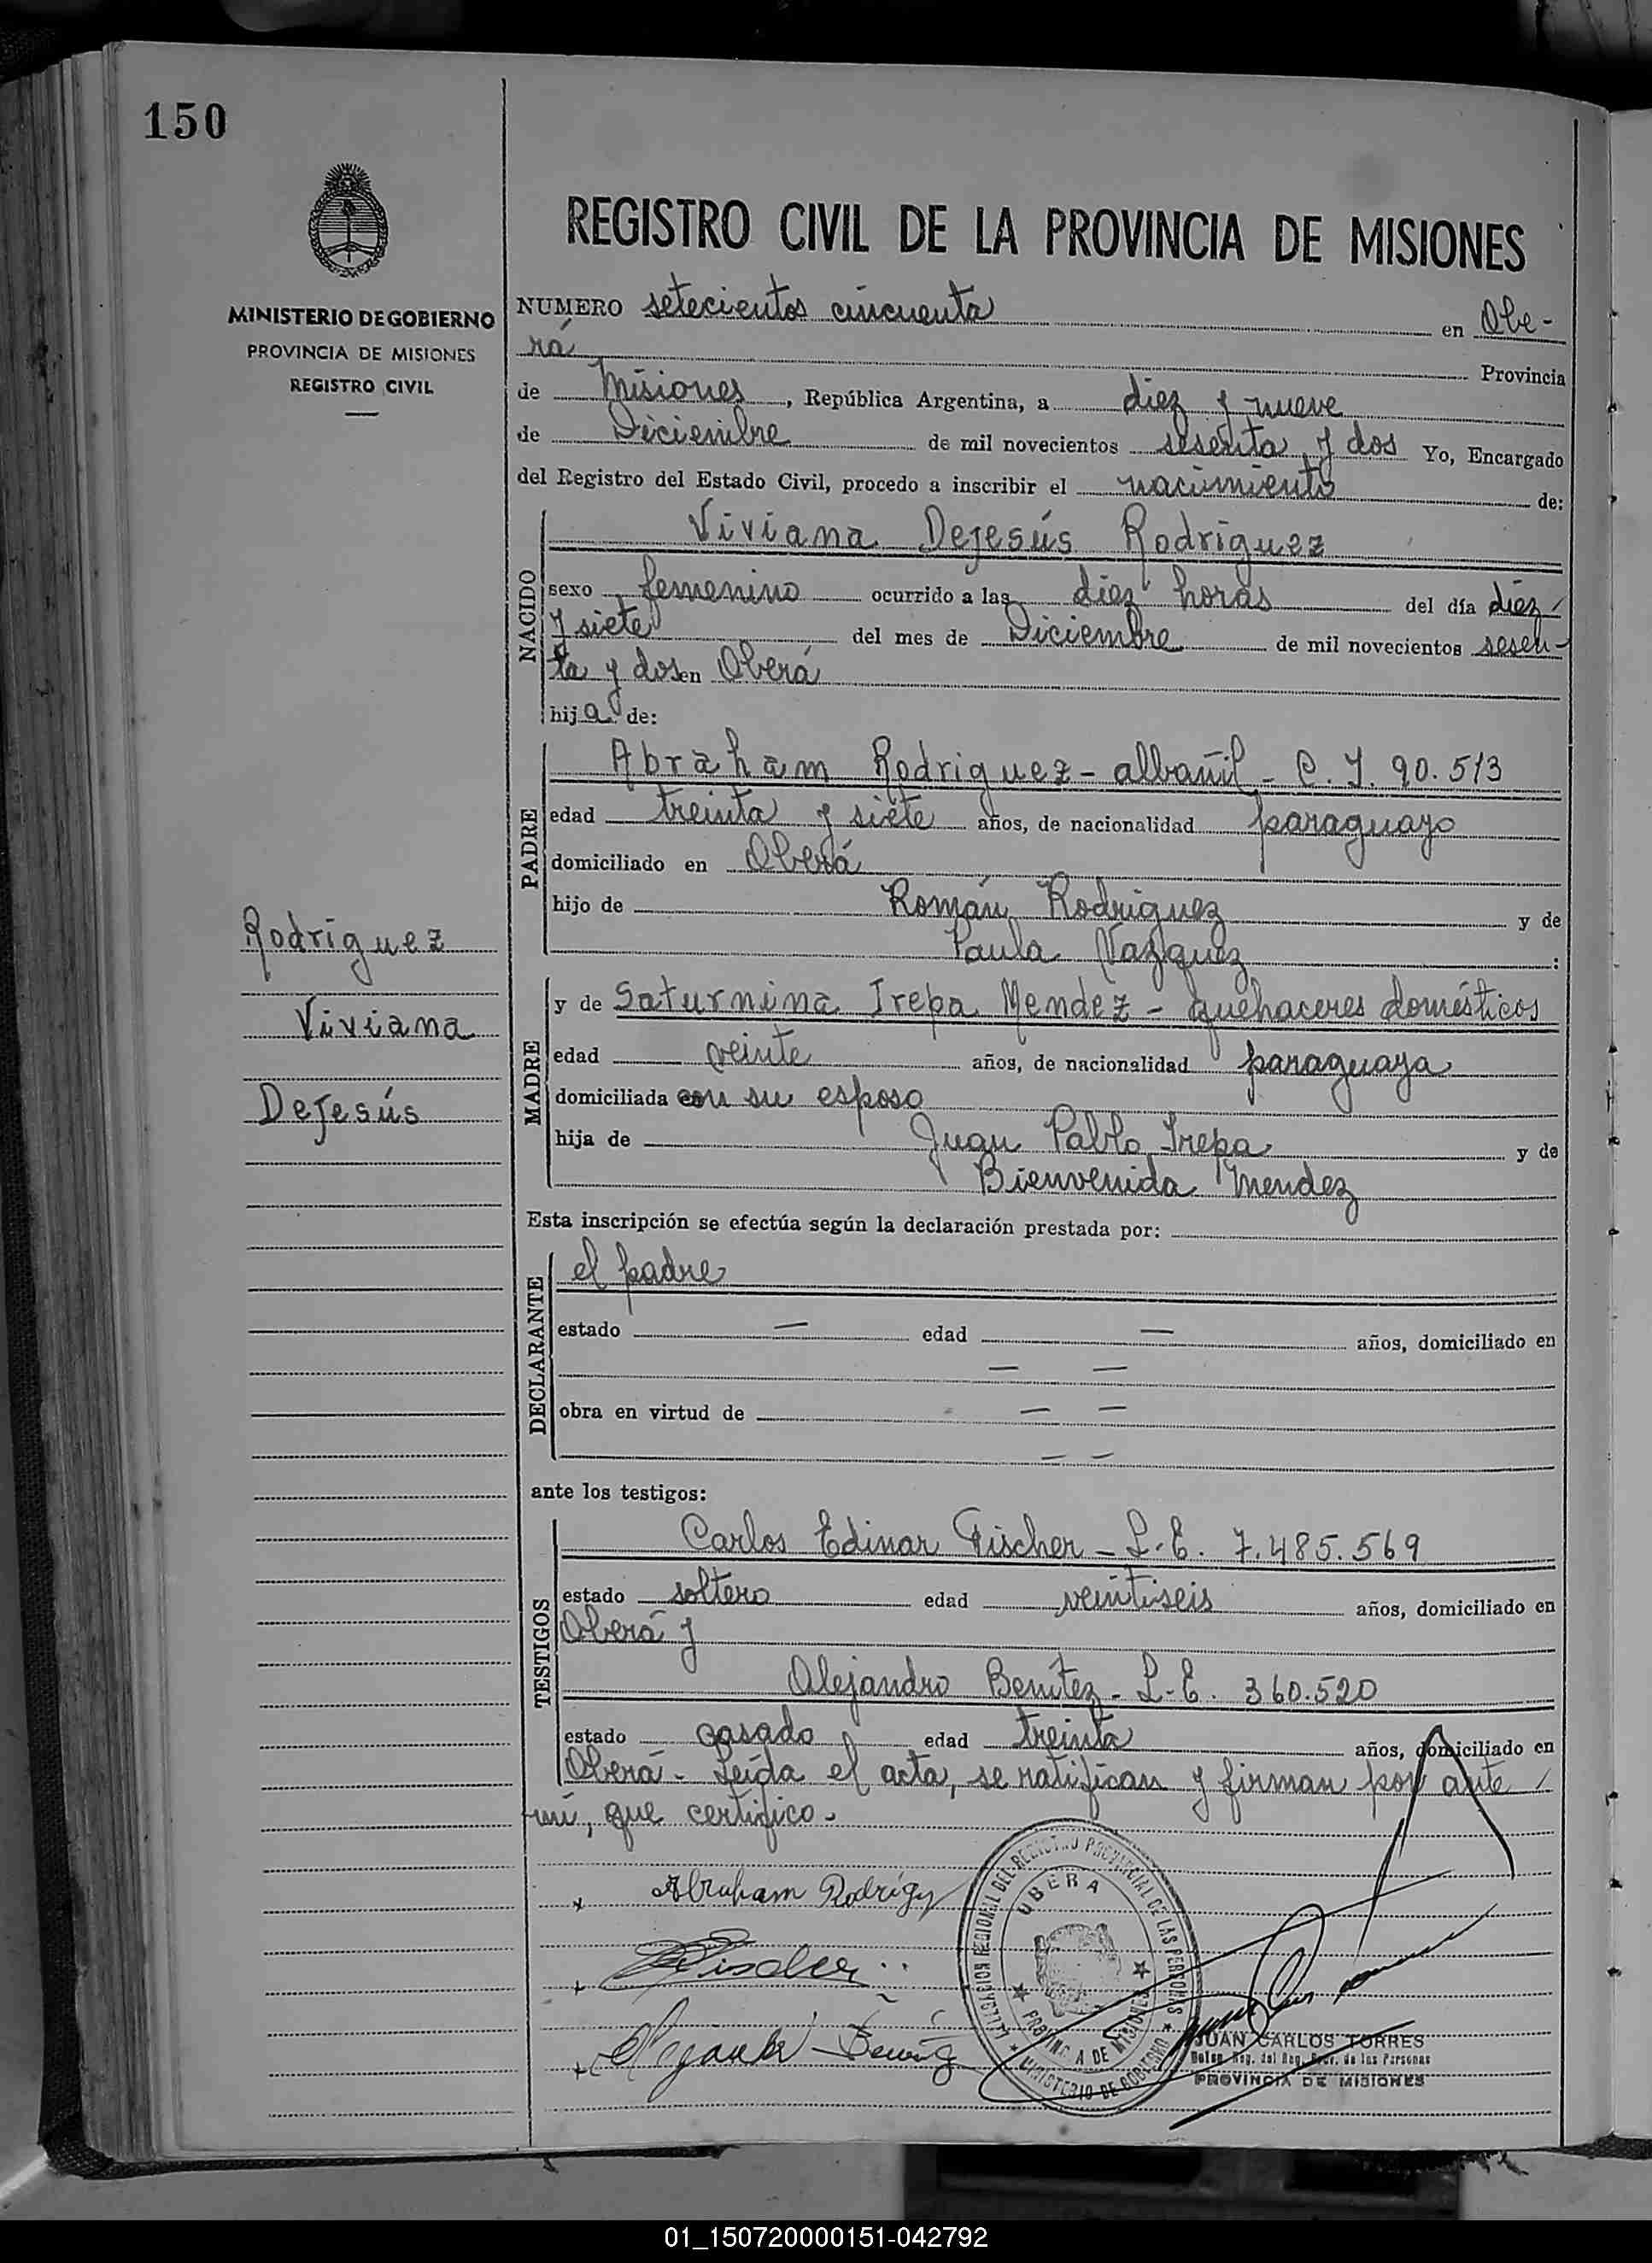 150
REGISTRO CIVIL DE LA PROVINCIA DE MISIONES
MINISTERIO DE GOBIERNO
PROVINCIA DE MISIONES
REGISTRO CIVIL
NUMERO setecientos cincuenta en Obe-
rá Provincia
de Misiones, República Argentina, a diez y nueve
de Diciembre de mil novecientos sesenta y dos Yo, Encargado
del Registro del Estado Civil, procedo a inscribir el nacimiento de:
NACIDO
Viviana Dejesús Rodriguez
sexo femenino ocurrido a las diez horas del día diez
y siete del mes de Diciembre de mil novecientos sesen-
ta y dos en Oberá
hija de:
PADRE
Abraham Rodriguez - albañil - C. I. 90.513
edad treinta y siete años, de nacionalidad paraguayo
domiciliado en Oberá
hijo de Román Rodriguez y de
Paula Vazquez :
Rodriguez
Viviana
Dejesús
MADRE
y de Saturnina Irepa Mendez - quehaceres domésticos
edad veinte años, de nacionalidad paraguaya
domiciliada con su esposo
hija de Juan Pablo Irepa y de
Bienvenida Mendez
Esta inscripción se efectúa según la declaración prestada por:
DECLARANTE
el padre
estado — edad — años, domiciliado en
— —
obra en virtud de — —
— —
ante los testigos:
TESTIGOS
Carlos Edinar Fischer - L.E. 7.485.569
estado soltero edad veintiseis años, domiciliado en
Oberá y
Alejandro Benítez - L.E. 360.520
estado casado edad treinta años, domiciliado en
Oberá - Leída el acta, se ratifican y firman por ante
mí, que certifico.
x Abraham Rodrigz
x Fischer
x Alejandro Beniz
DELEGACION REGIONAL DEL REGISTRO PROVINCIAL DE LAS PERSONAS
OBERA
PROVINCIA DE MISIONES
MINISTERIO DE GOBIERNO
JUAN CARLOS TORRES
Deleg. Reg. del Reg. Prov. de las Personas
PROVINCIA DE MISIONES
01_150720000151-042792